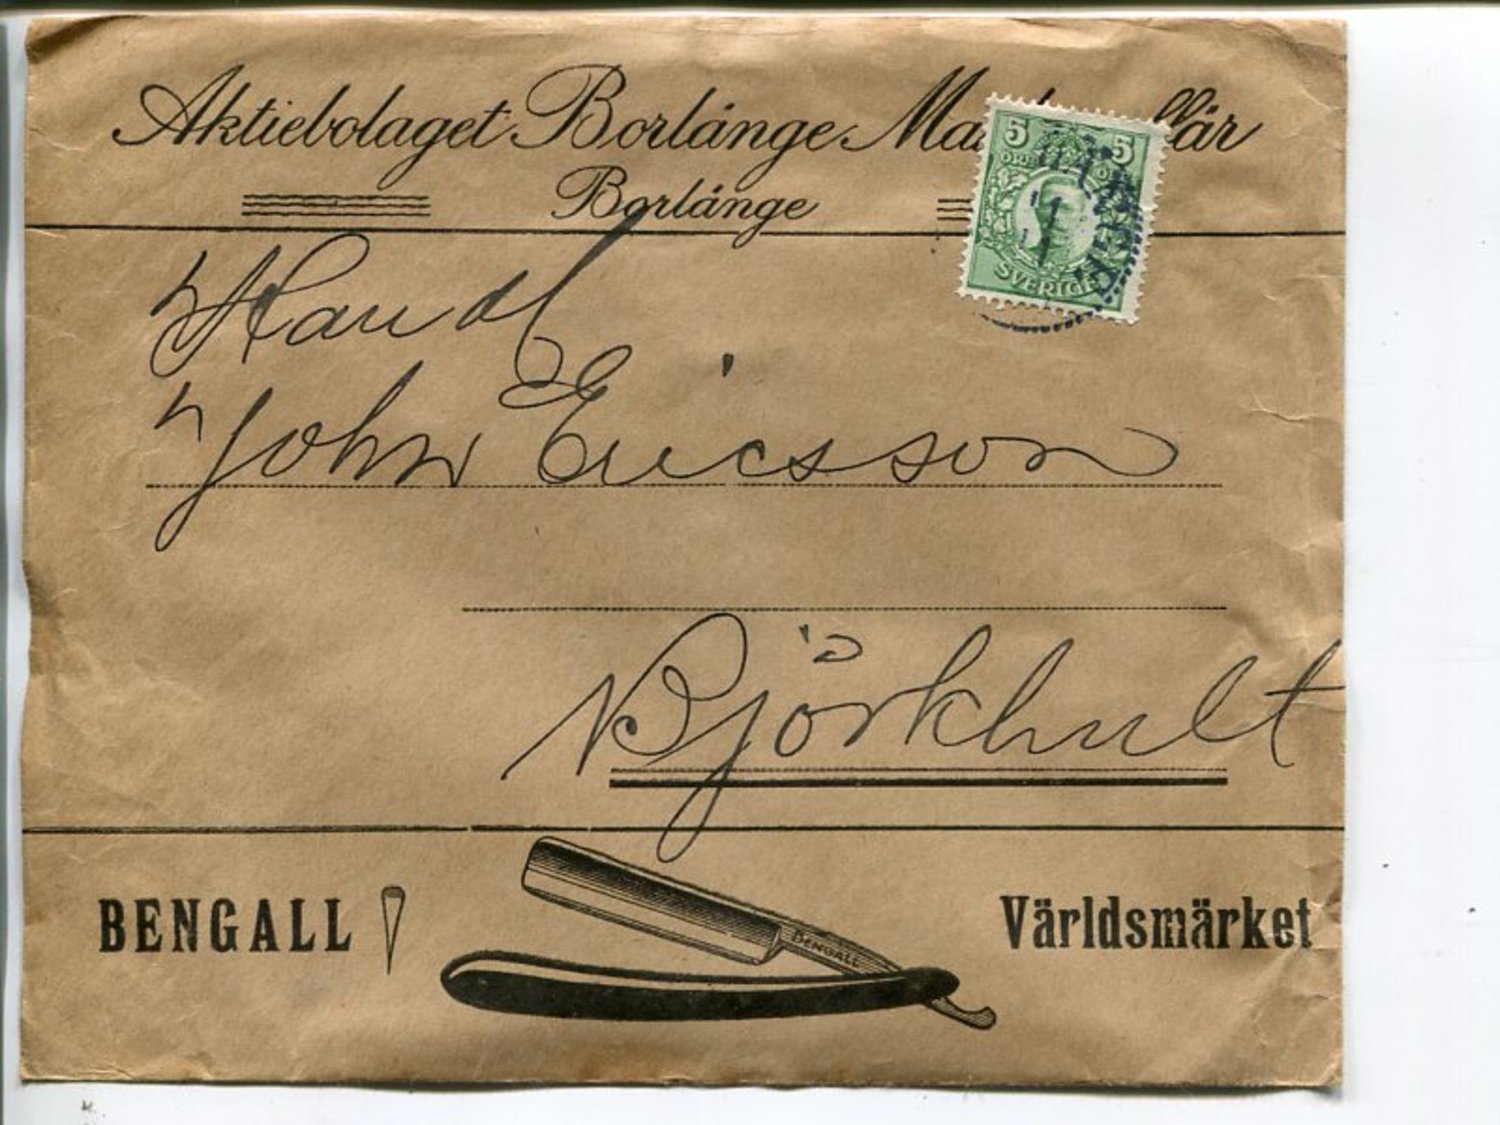 Aktiebolaget Borlänge
Borlänge
5 5
ÖRE
SVERIGE
Handl
John Ericsson
Björkhult
BENGALL
BENGALL
Världsmärket